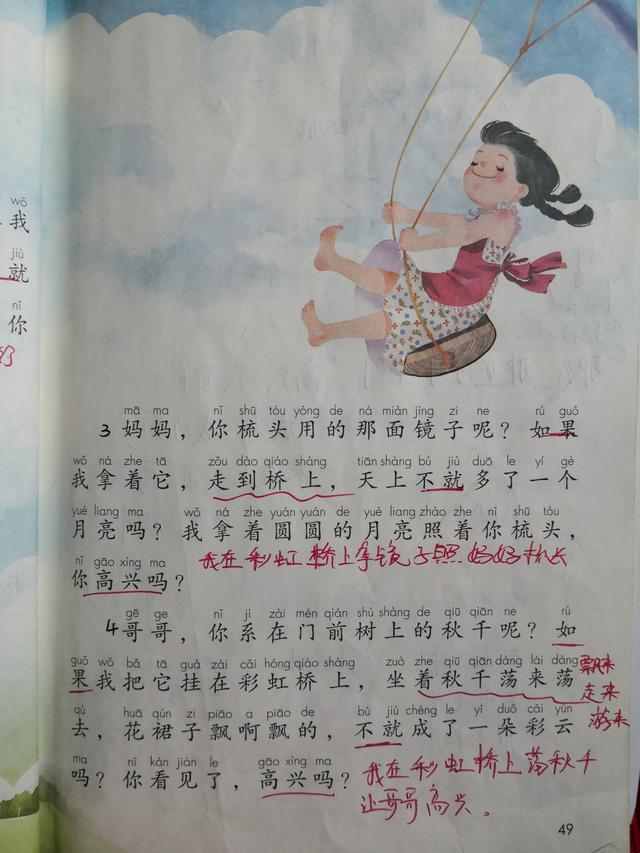 wǒ
我
jiù
就
nǐ
你
mā ma nǐ shū tóu yòng de nà miàn jìng zi ne rú guǒ
3 妈妈，你梳头用的那面镜子呢？如果
wǒ ná zhe tā zǒu dào qiáo shàng tiān shàng bú jiù duō le yí gè
我拿着它，走到桥上，天上不就多了一个
yuè liang ma wǒ ná zhe yuán yuán de yuè liang zhào zhe nǐ shū tóu
月亮吗？我拿着圆圆的月亮照着你梳头，
nǐ gāo xìng ma
你高兴吗？
我在彩虹桥上拿镜子照妈妈梳头
gē ge nǐ jì zài mén qián shù shàng de qiū qiān ne rú
4 哥哥，你系在门前树上的秋千呢？如
guǒ wǒ bǎ tā guà zài cǎi hóng qiáo shàng zuò zhe qiū qiān dàng lái dàng
果我把它挂在彩虹桥上，坐着秋千荡来荡
飘来
走来
游来
qù huā qún zi piāo a piāo de bú jiù chéng le yì duǒ cǎi yún
去，花裙子飘啊飘的，不就成了一朵彩云
ma nǐ kàn jiàn le gāo xìng ma
吗？你看见了，高兴吗？
我在彩虹桥上荡秋千
让哥哥高兴。
49